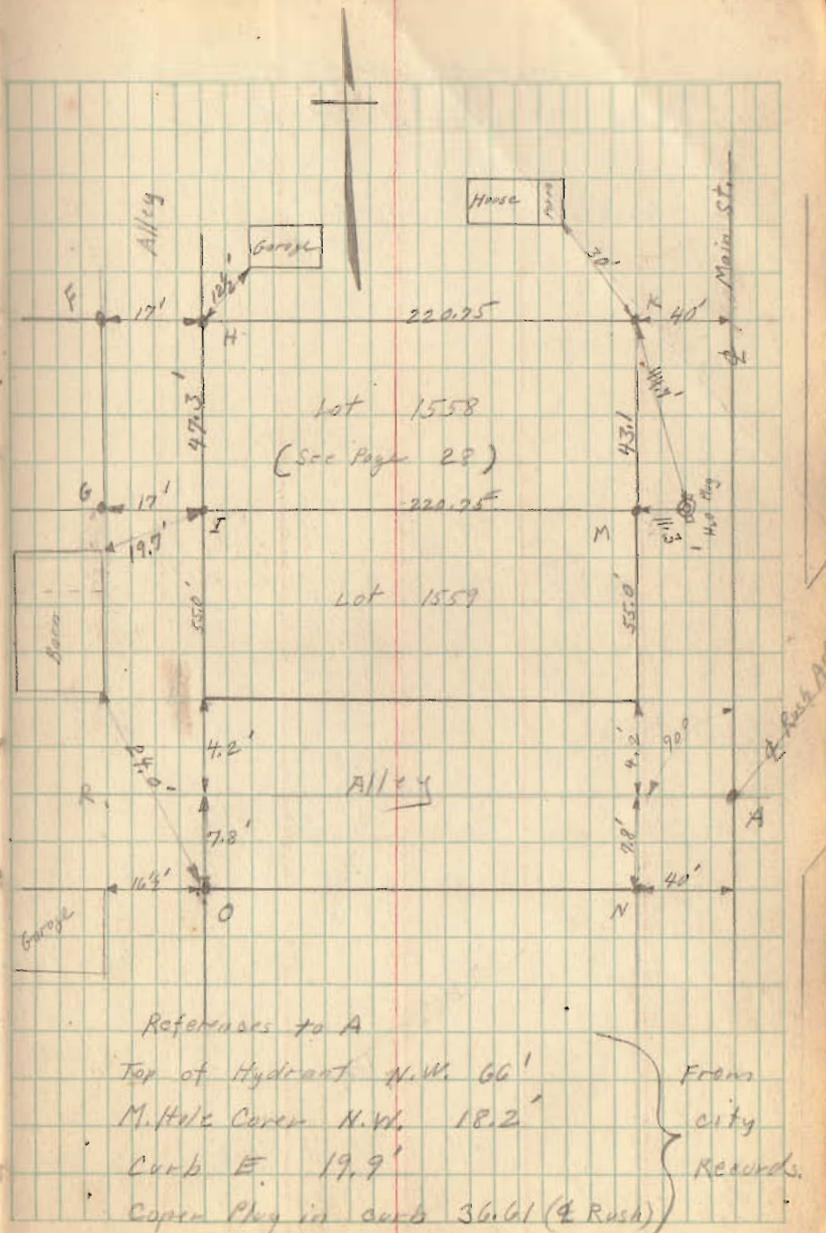 Alley
House
Porch
Main St.
Garage
12½'
30'
F
17'
H
220.75
K
40'
℄
47.3'
Lot 1558
43.1
(See Page 28)
G
17'
I
220.75
M
11.3'
H₂O Plug
19.7'
Barn
55.0'
Lot 1559
55.0'
4.2'
Alley
4.2'
90°
℄ Rush
R.
A
7.8'
7.8'
16½'
O
N
40'
Garage
References to A
Top of Hydrant N.W. 66'
M.Hole Cover N.W. 18.2'
Curb E. 19.9'
Coper Plug in curb 36.61 (℄ Rush)
From
city
Records.